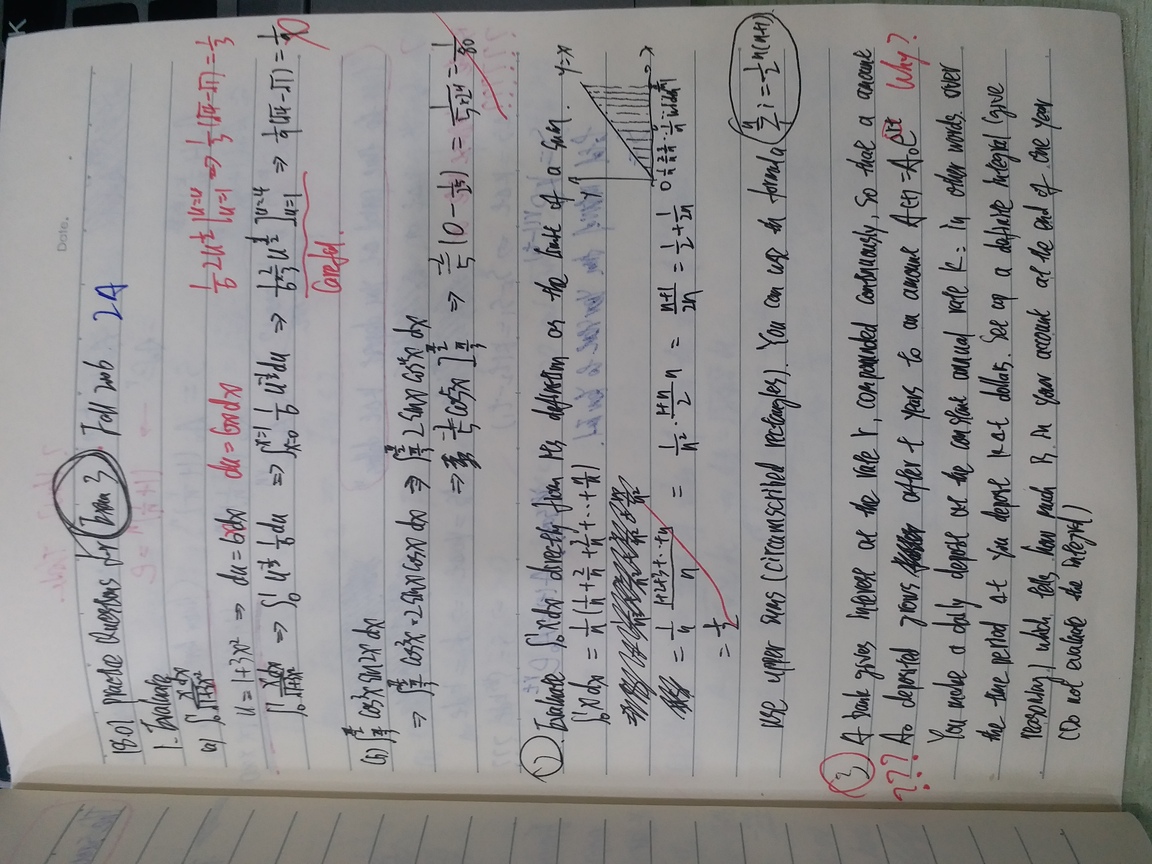 Date.
18.01 practice Questions for Exam 3 Fall 2006 2A
1. Evaluate
(a) ∫₀¹ xdx/√(1+3x²)
u = 1+3x² ⇒ du = 6xdx du = 6xdx
1/6 2u^(1/2) |_{u=1}^{u=4} ⇒ 1/3 (√4-√1) = 1/3
∫₀¹ xdx/√(1+3x²) ⇒ ∫₀¹ u^(-1/2) 1/6 du ⇒ ∫_{x=0}^{x=1} 1/6 u^(-1/2) du ⇒ 1/6 × 2/3 u^(1/2) ]_{u=1}^{u=4} ⇒ 1/9 (√4-√1) = 1/9
Careful.
(b) ∫_{π/3}^{π/2} cos³x sin2x dx
⇒ ∫_{π/3}^{π/2} cos³x · 2sinx cosx dx ⇒ ∫_{π/3}^{π/2} 2 sinx cos⁴x dx
⇒ -2/5 cos⁵x ]_{π/3}^{π/2} ⇒ -2/5 (0 - 1/2⁵) = 1/(5×2⁴) = 1/80
2. Evaluate ∫₀¹ xdx directly from its definition as the limit of a sum.
∫₀¹ xdx = 1/n (1/n + 2/n + 3/n + ... + n/n)
y y=x
0 1/n 2/n 3/n x
= 1/n (1+2+3+...+n)/n = 1/n² · (1+n)/2 n = (n+1)/2n = 1/2 + 1/2n
= 1/2
use upper sums (circumscribed rectangles). You can use th formula ∑₁ⁿ i = 1/2 n(n+1)
3 A bank gives interest at the rate r, compounded continuously, so that a amount
??? A₀ deposited grows after t years to an amount A(t) = A₀e^(rt) Why?
You make a daily deposit at the constant annual rate k: in other words. over
the time period Δt you deposit kΔt dollars. Set up a definite integral (give
reasoning) which tells how much is in your account at the end of one year
(Do not evaluate the integral)